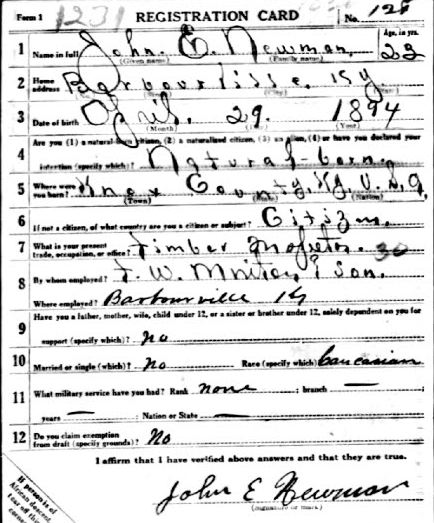 Form 1 1231 REGISTRATION CARD No. 128
1 Name in full John E. Newman Age, in yrs. 23
(Given name) (Family name)
2 Home address Barbourville, Ky.
3 Date of birth April 29 1894
(Month) (Day) (Year)
Are you (1) a natural-born citizen, (2) a naturalized citizen, (3) an alien, (4) or have you declared your
4 intention (specify which)? Natural-born.
5 Where were you born? Knox County, Ky, U.S.A.
(Town) (State) (Nation)
6 If not a citizen, of what country are you a citizen or subject? Citizen.
7 What is your present trade, occupation, or office? Timber 30
8 By whom employed? & Son.
Where employed? Barbourville Ky
9 Have you a father, mother, wife, child under 12, or a sister or brother under 12, solely dependent on you for
support (specify which)? No
10 Married or single (which)? No Race (specify which)? Caucasian
11 What military service have you had? Rank none ; branch —
years — ; Nation or State —
12 Do you claim exemption from draft (specify grounds)? No
I affirm that I have verified above answers and that they are true.
John E Newman
(Signature or mark)
If person is of
African descent,
tear off this
corner